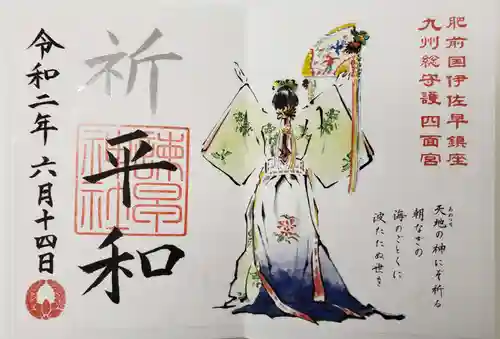 肥前国伊佐早鎮座
九州総守護 四面宮
天地の神にぞ祈る
あめつち
朝なぎの
海のごとくに
波たたぬ世を
祈
平和
令和二年 六月十四日